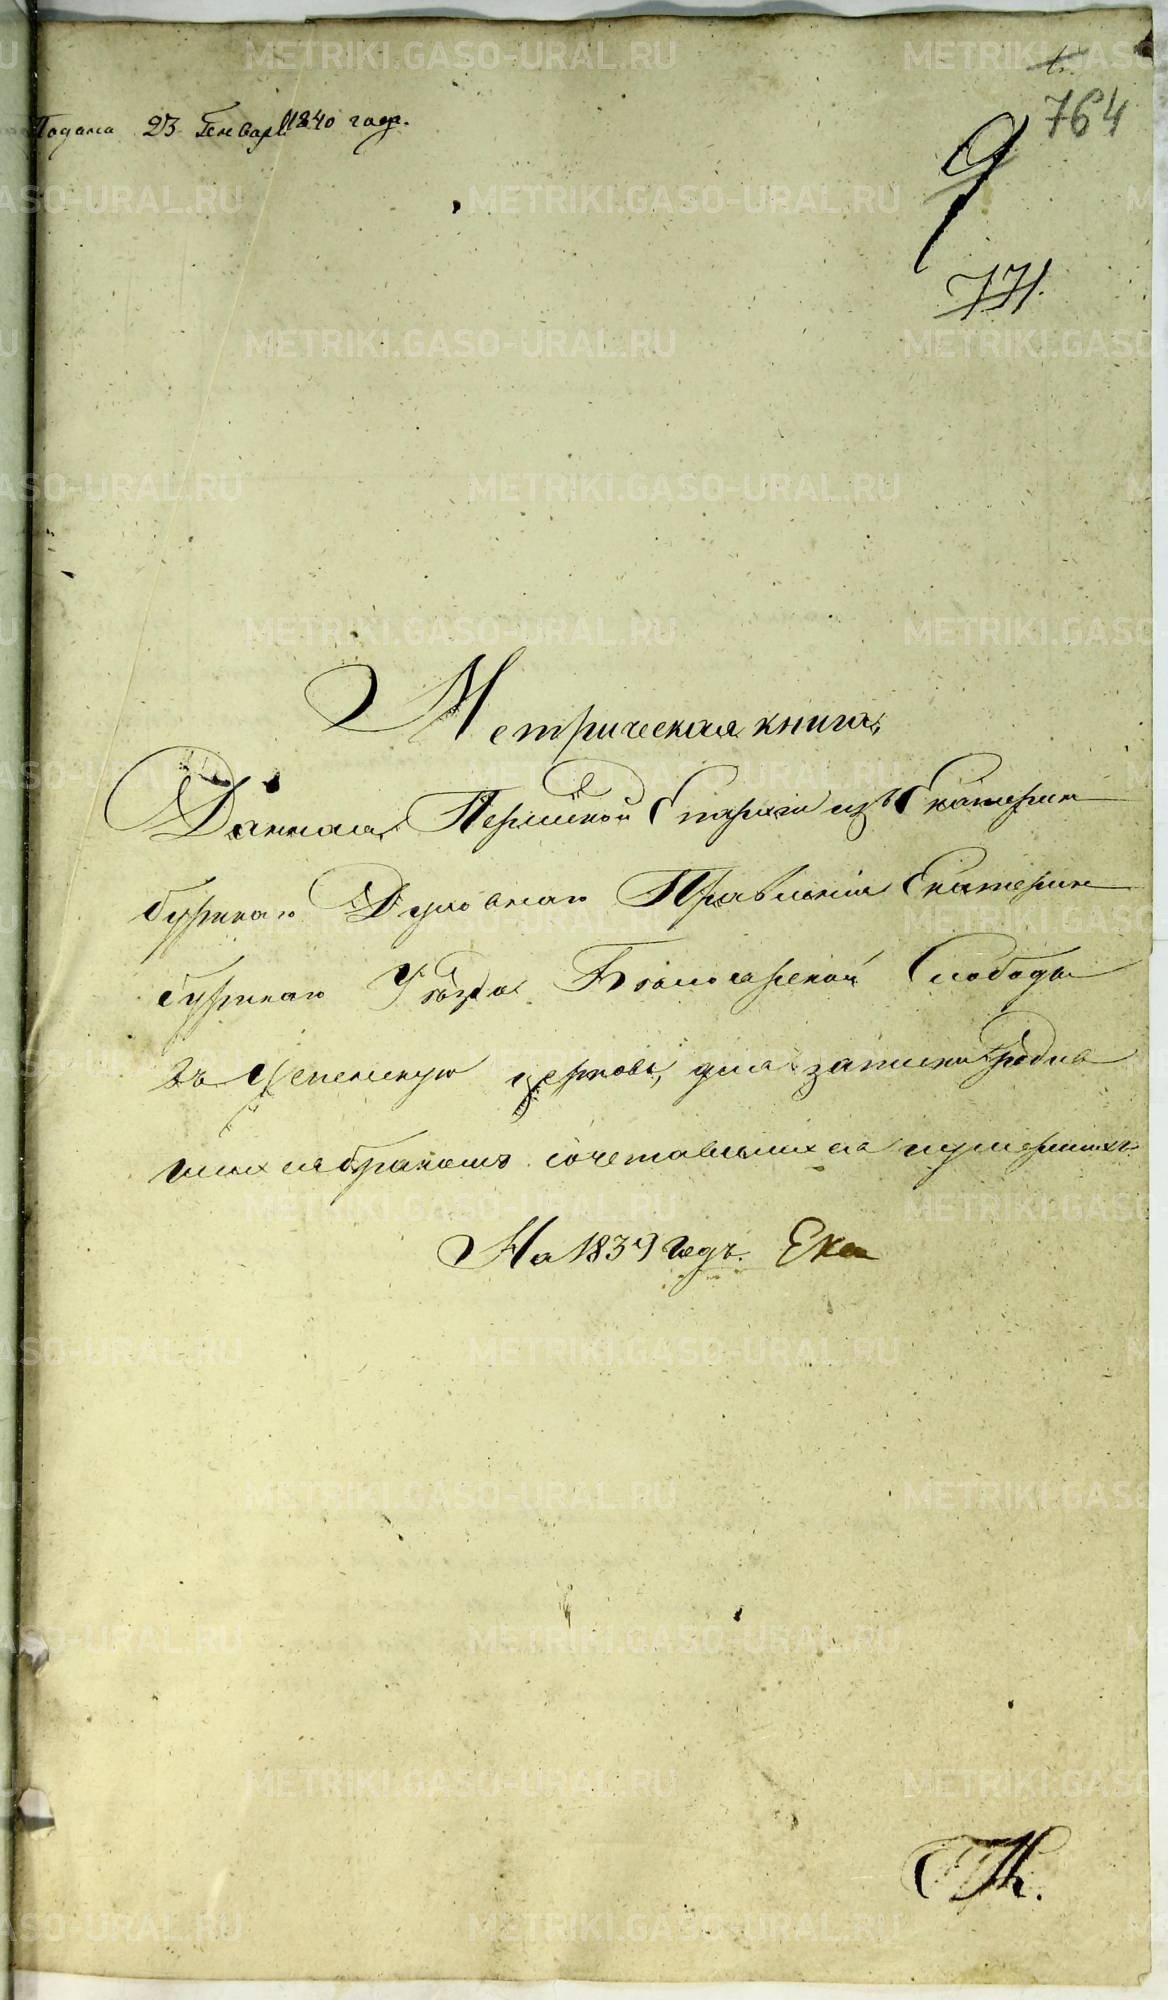 764
Подана 23 Генваря 1840 года.
9
771.
Метрическая книга,
Данная Пермской Епархіи изъ Екатерин
бургскаго Духовнаго Правленія Екатерин
бургскаго Уѣзда Бѣлоярской Слободы
въ Успенскую церковь, для записки родив
шихся бракомъ сочетавшихся и умершихъ
На 1839 годъ. Ека
METRIKI.GASO-URAL.RU